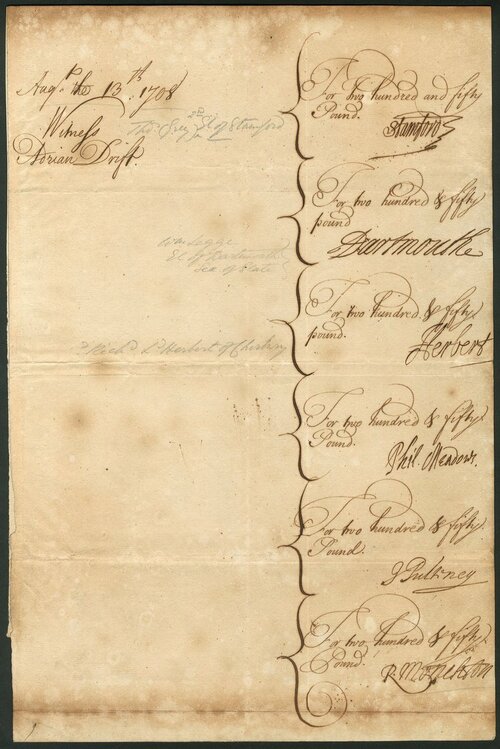 Augt. the 13th. 1708
Witness
Adrian Drift.
Tho: Grey 2d El of Stamford
Wm Legge
El of Dartmouth
Sec of State
? Richd Ld Herbert of Cherbury
For two hundred and fifty
Pound.
Stamford
For two hundred & fifty
pound
Dartmouthe
For two hundred & fifty
pound.
Herbert
For two hundred & fifty
Pound.
Phil. Meadows.
For two hundred & fifty
Pound.
J Pultney
For two hundred & fifty
Pound.
R. Monckton